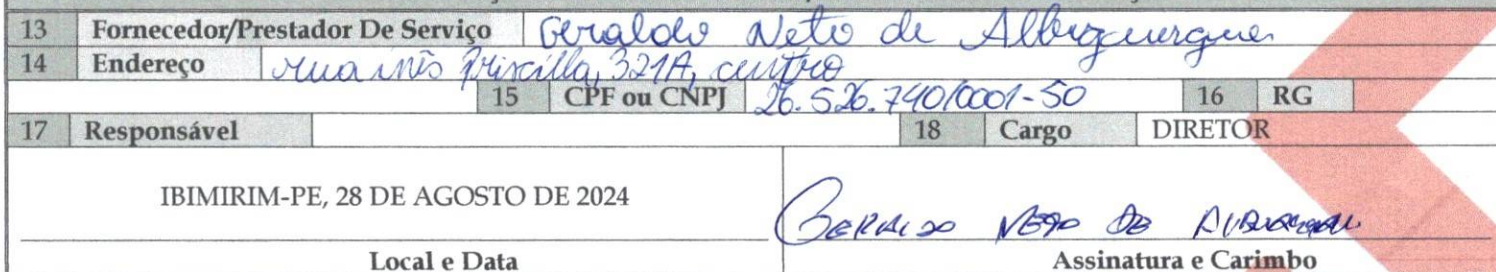 13 Fornecedor/Prestador De Serviço Geraldo Neto de Albuquerque
14 Endereço rua inês priscilla, 321A, centro
15 CPF ou CNPJ 26.526.740/0001-50 16 RG
17 Responsável 18 Cargo DIRETOR
IBIMIRIM-PE, 28 DE AGOSTO DE 2024
GERALDO NETO DE
Local e Data Assinatura e Carimbo